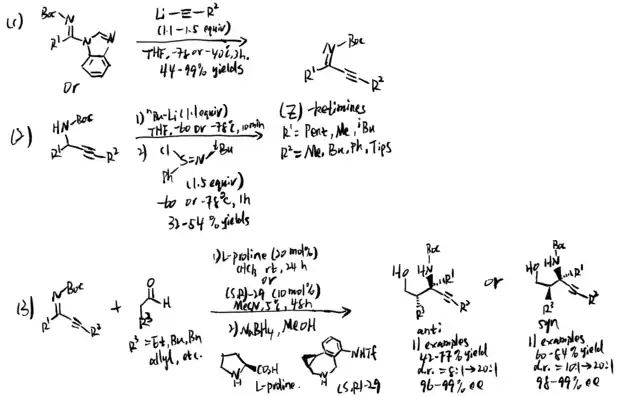 (1)
Boc N
R¹ N N
Li-≡-R²
(1.1-1.5 equiv)
THF, -78 or -40℃, 2h.
44-99% yields
N Boc
R¹ R²
or
(2)
HN Boc
R¹ R²
1) ⁿBu-Li (1.1 equiv)
THF, -60 or -78℃, 10min
2) Cl S=N ᵗBu
Ph
(1.5 equiv)
-60 or -78℃, 1h
32-54% yields
(Z)-ketimines
R¹ = Pent, Me, ⁱBu
R² = Me, Bu, Ph, Tips
(3)
N Boc
R¹ R²
+
O H
R³
R³ = Et, Bu, Bn
allyl, etc.
1) L-proline (20 mol%)
rt, 24 h
or
29 (10 mol%)
MeCN, 5℃, 48h
2) NaBH₄, MeOH
N H CO₂H
L-proline
NHTf
N H
29
Boc
HO HN R¹
R³ R²
anti
11 examples
42-77% yield
d.r. = 8:1→20:1
96-99% ee
or
Boc
HO HN R¹
R³ R²
syn
11 examples
60-84% yield
d.r. = 10:1→20:1
98-99% ee